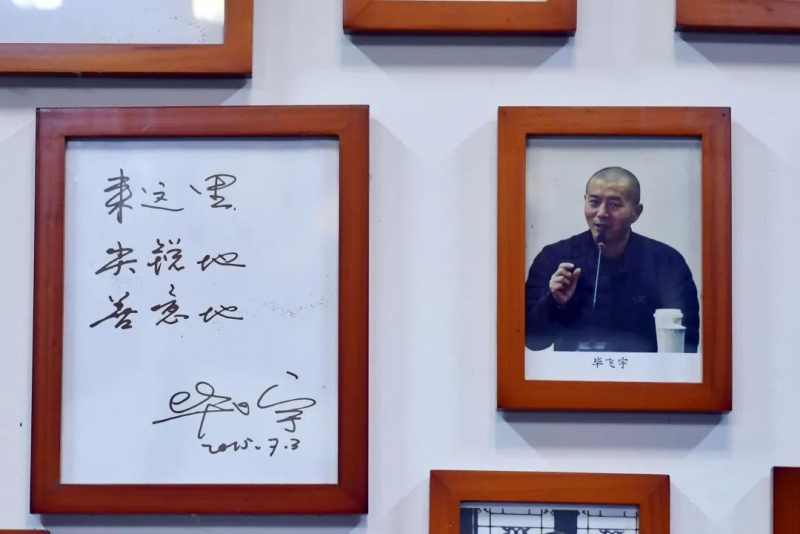 来这里
尖锐地
善意地
毕飞宇
2015.7.3
毕飞宇